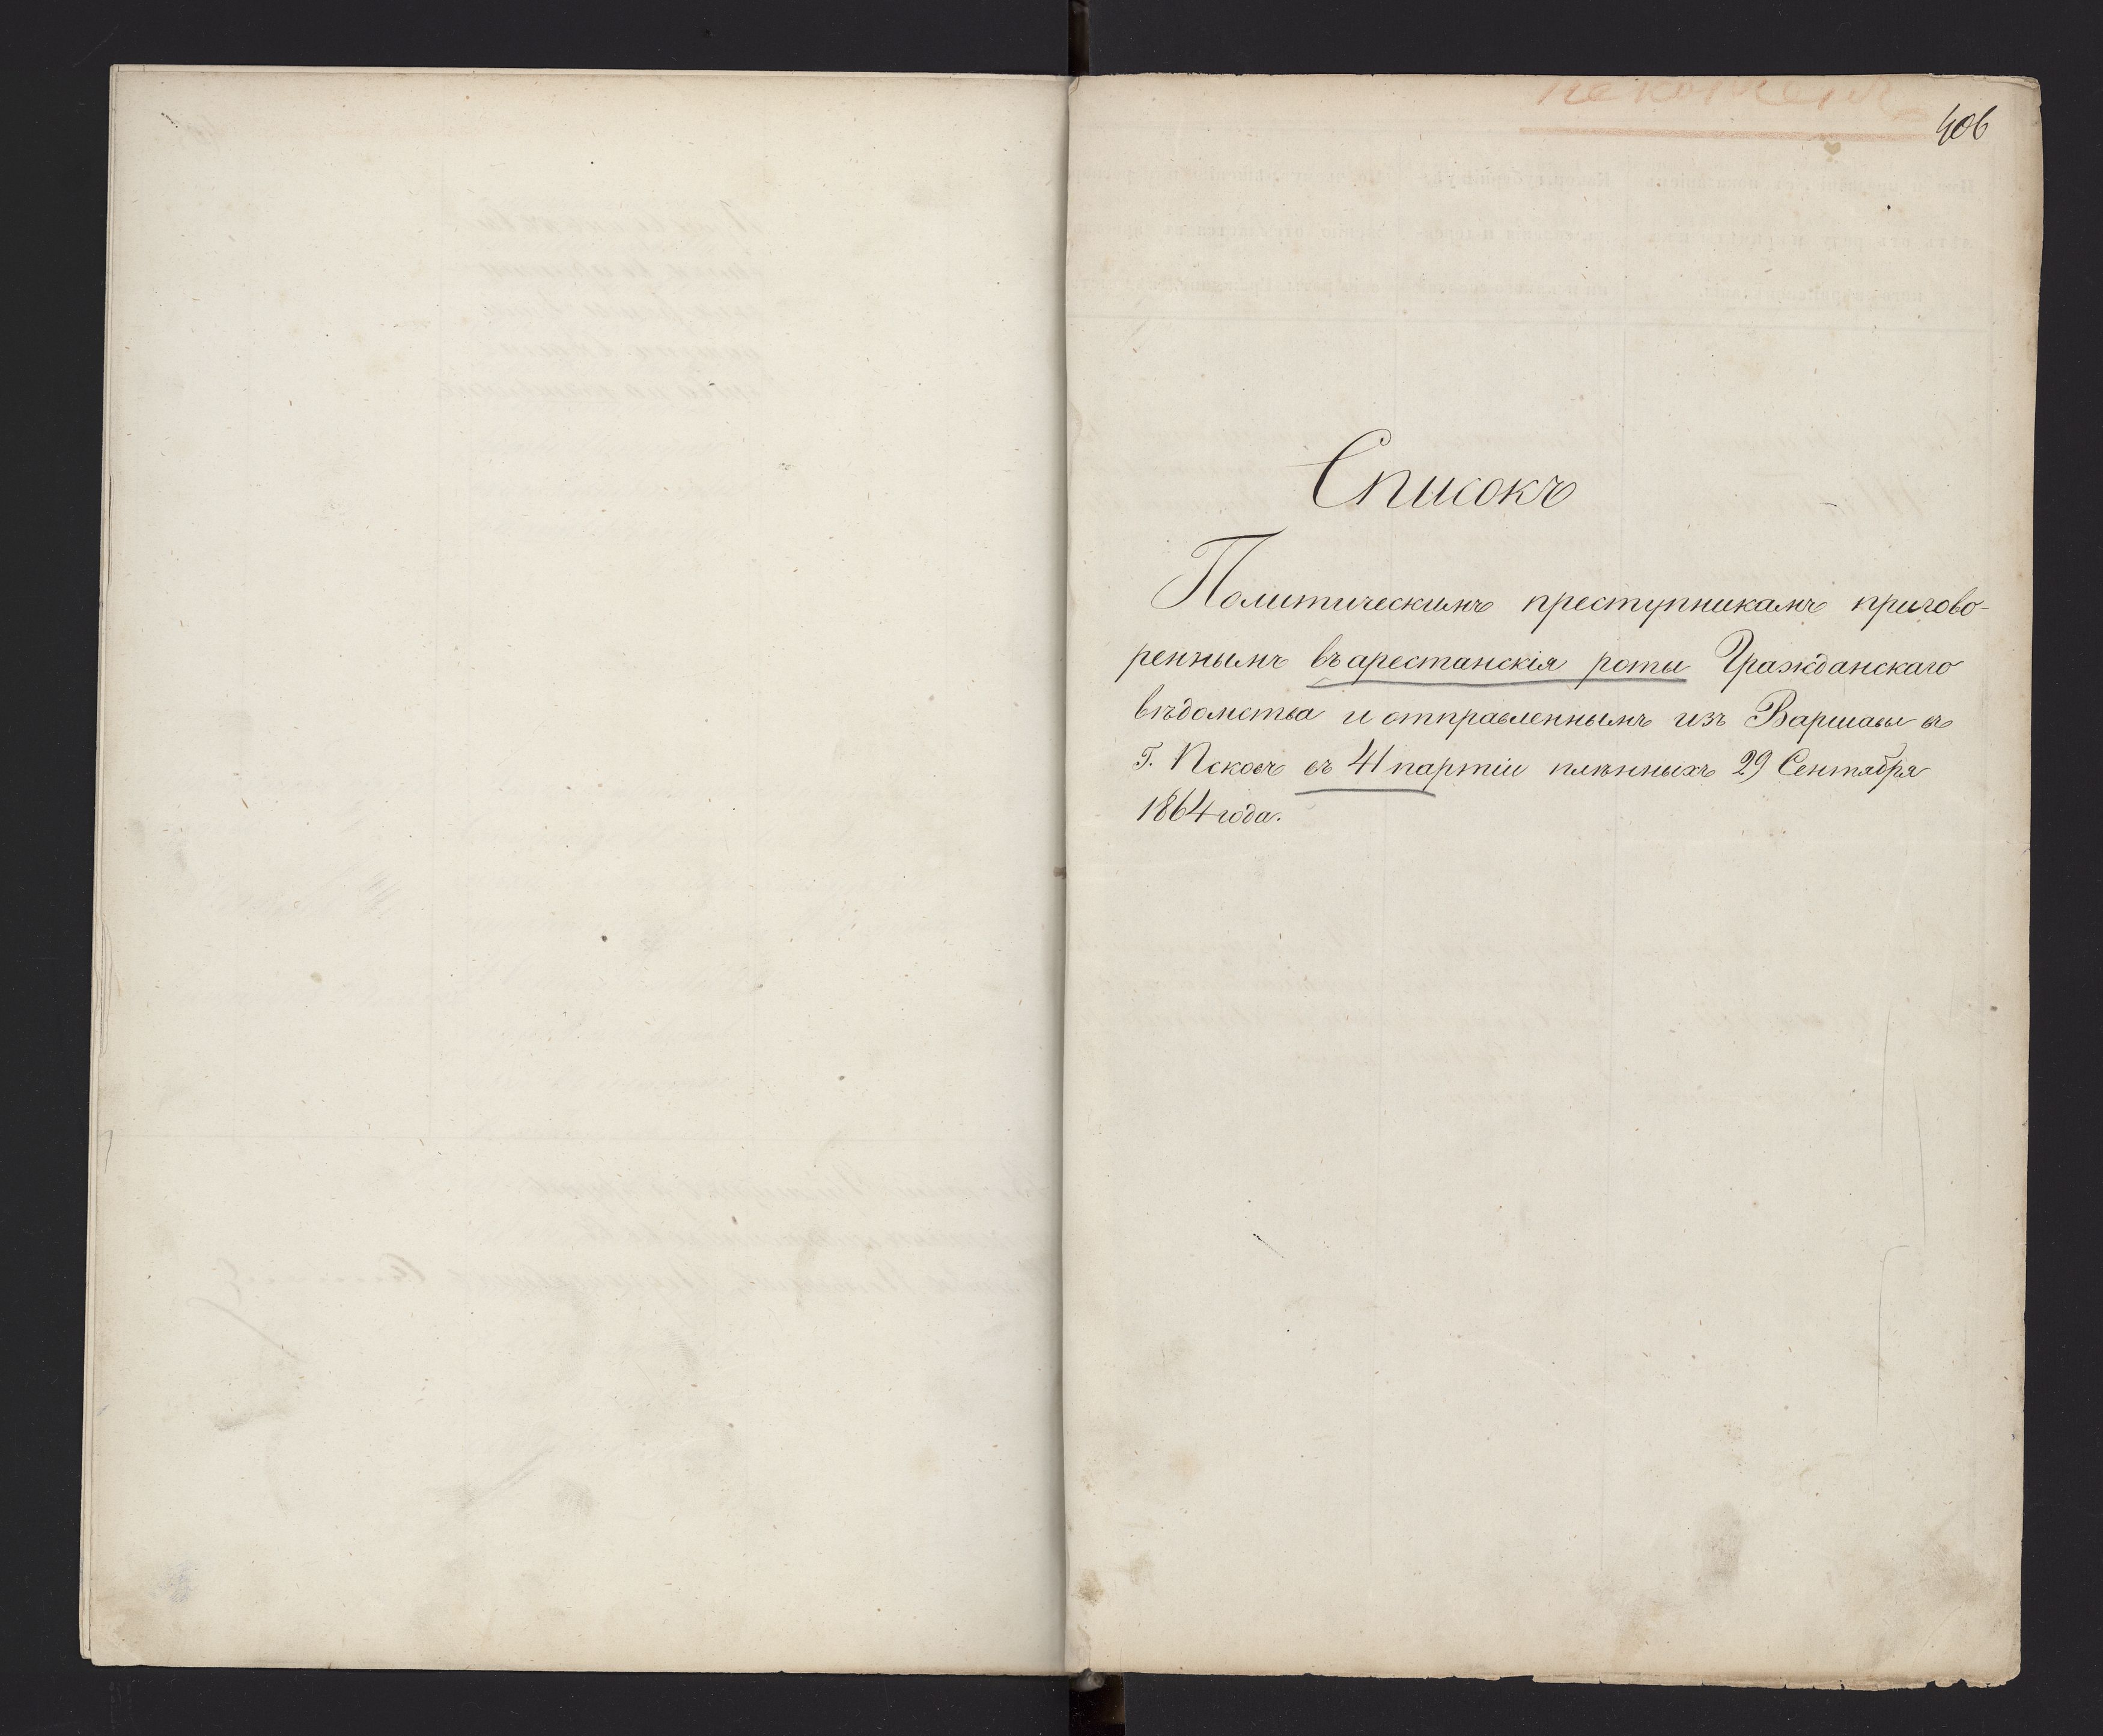 406
Списокъ
Политическимъ преступникамъ пригово-
реннымъ въ арестанскія роты Гражданскаго
вѣдомства и отправленнымъ изъ Варшавы въ
Г. Псковъ въ 41 партіи плѣнныхъ 29 Сентября
1864 года.